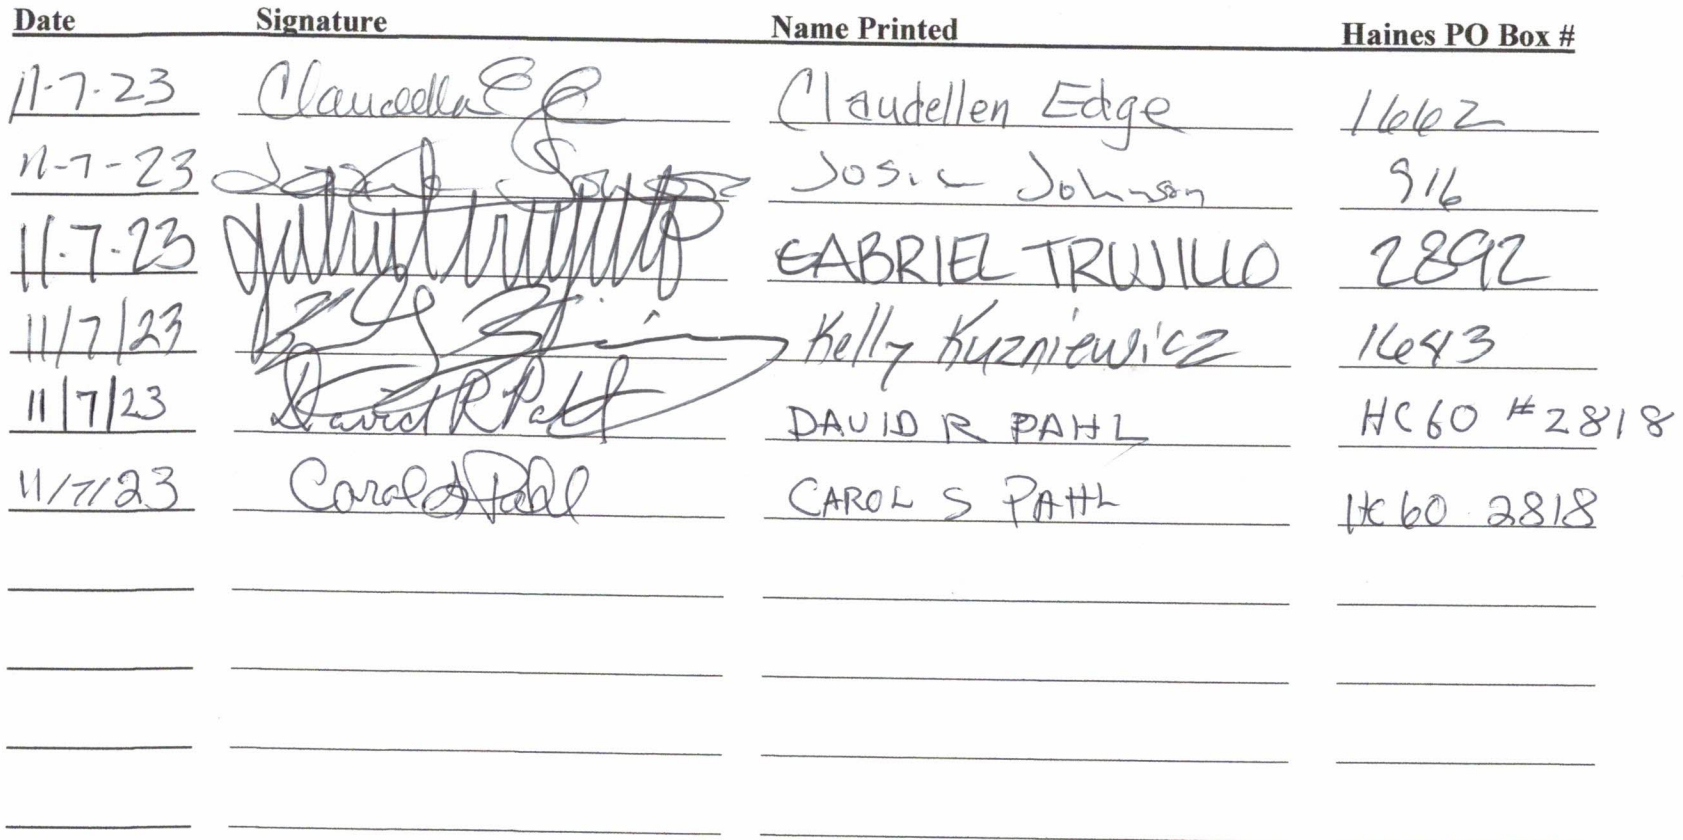 Date Signature Name Printed Haines PO Box #
11-7-23 Claudellen Edge 1662
11-7-23 Josie Johnson 916
11-7-23 GABRIEL TRUJILLO 2892
11/7/23 Kelly Kuzniewicz 1643
11/7/23 David R Pahl DAVID R PAHL HC60 #2818
11/7/23 Carol S Pahl CAROL S PAHL HC60 2818